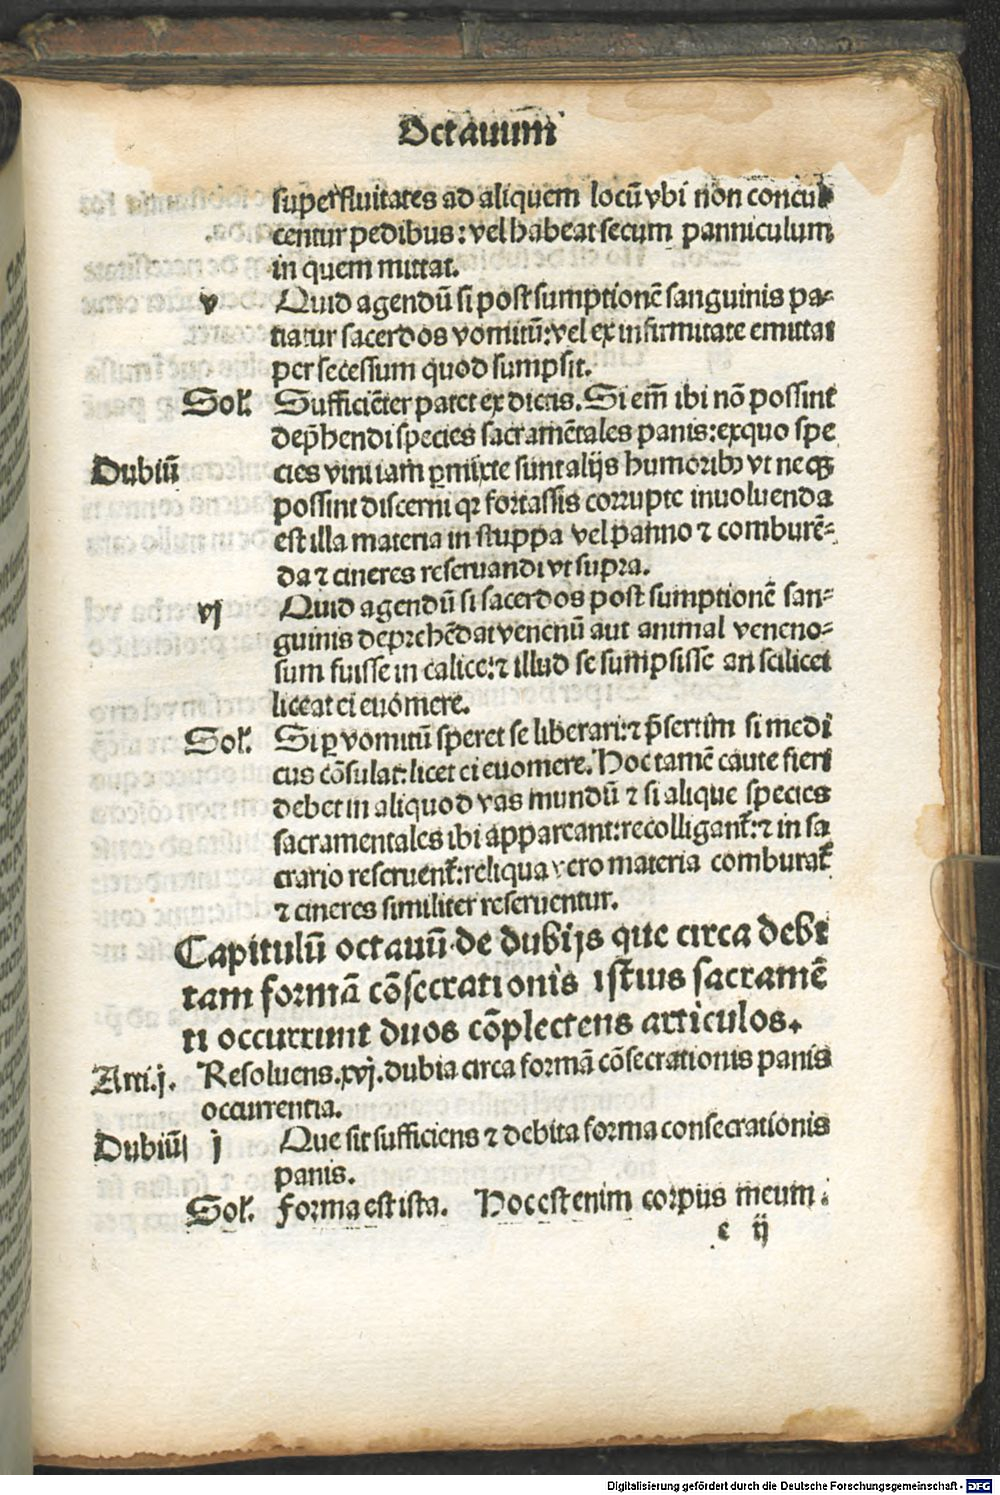 Octauum
superfluitates ad aliquem locū vbi non concul
centur pedibus: vel habeat secum panniculum
in quem mittat.
v Quid agendū si post sumptionē sanguinis pa-
tiatur sacerdos vomitū: vel ex infirmitate emittat
per secessum quod sumpsit.
Sol. Sufficiēter patet ex dictis. Si em̄ ibi nō possint
dep̄hendi species sacramētales panis: ex quo spe
Dubiū cies vini iam ꝑmixte sunt alijs humoribꝫ vt neqꝫ
possint discerni qꝛ fortassis corrupte inuoluenda
est illa materia in stuppa vel panno ⁊ comburē-
da ⁊ cineres reseruandi vt supra.
vj Quid agendū si sacerdos post sumptionē san-
guinis deprehēdat venenū aut animal veneno-
sum fuisse in calice: ⁊ illud se sumpsisse an scilicet
liceat ei euomere.
Sol. Si ꝑ vomitū speret se liberari: ⁊ p̄sertim si medi
cus cōsulat: licet ei euomere. Hoc tamē caute fieri
debet in aliquod vas mundū ⁊ si alique species
sacramentales ibi appareant: recolligant̄: ⁊ in sa
crario reseruent̄: reliqua vero materia comburat̄
⁊ cineres similiter reseruentur.
Capitulū octauū de dubijs que circa debi
tam formā cōsecrationis istius sacramē
ti occurrunt duos cōplectens articulos.
Arti. j. Resoluens .xvj. dubia circa formā cōsecrationis panis
occurrentia.
Dubiū j Que sit sufficiens ⁊ debita forma consecrationis
panis.
Sol. Forma est ista. Hoc est enim corpus meum.
e ij
Digitalisierung gefördert durch die Deutsche Forschungsgemeinschaft - DFG